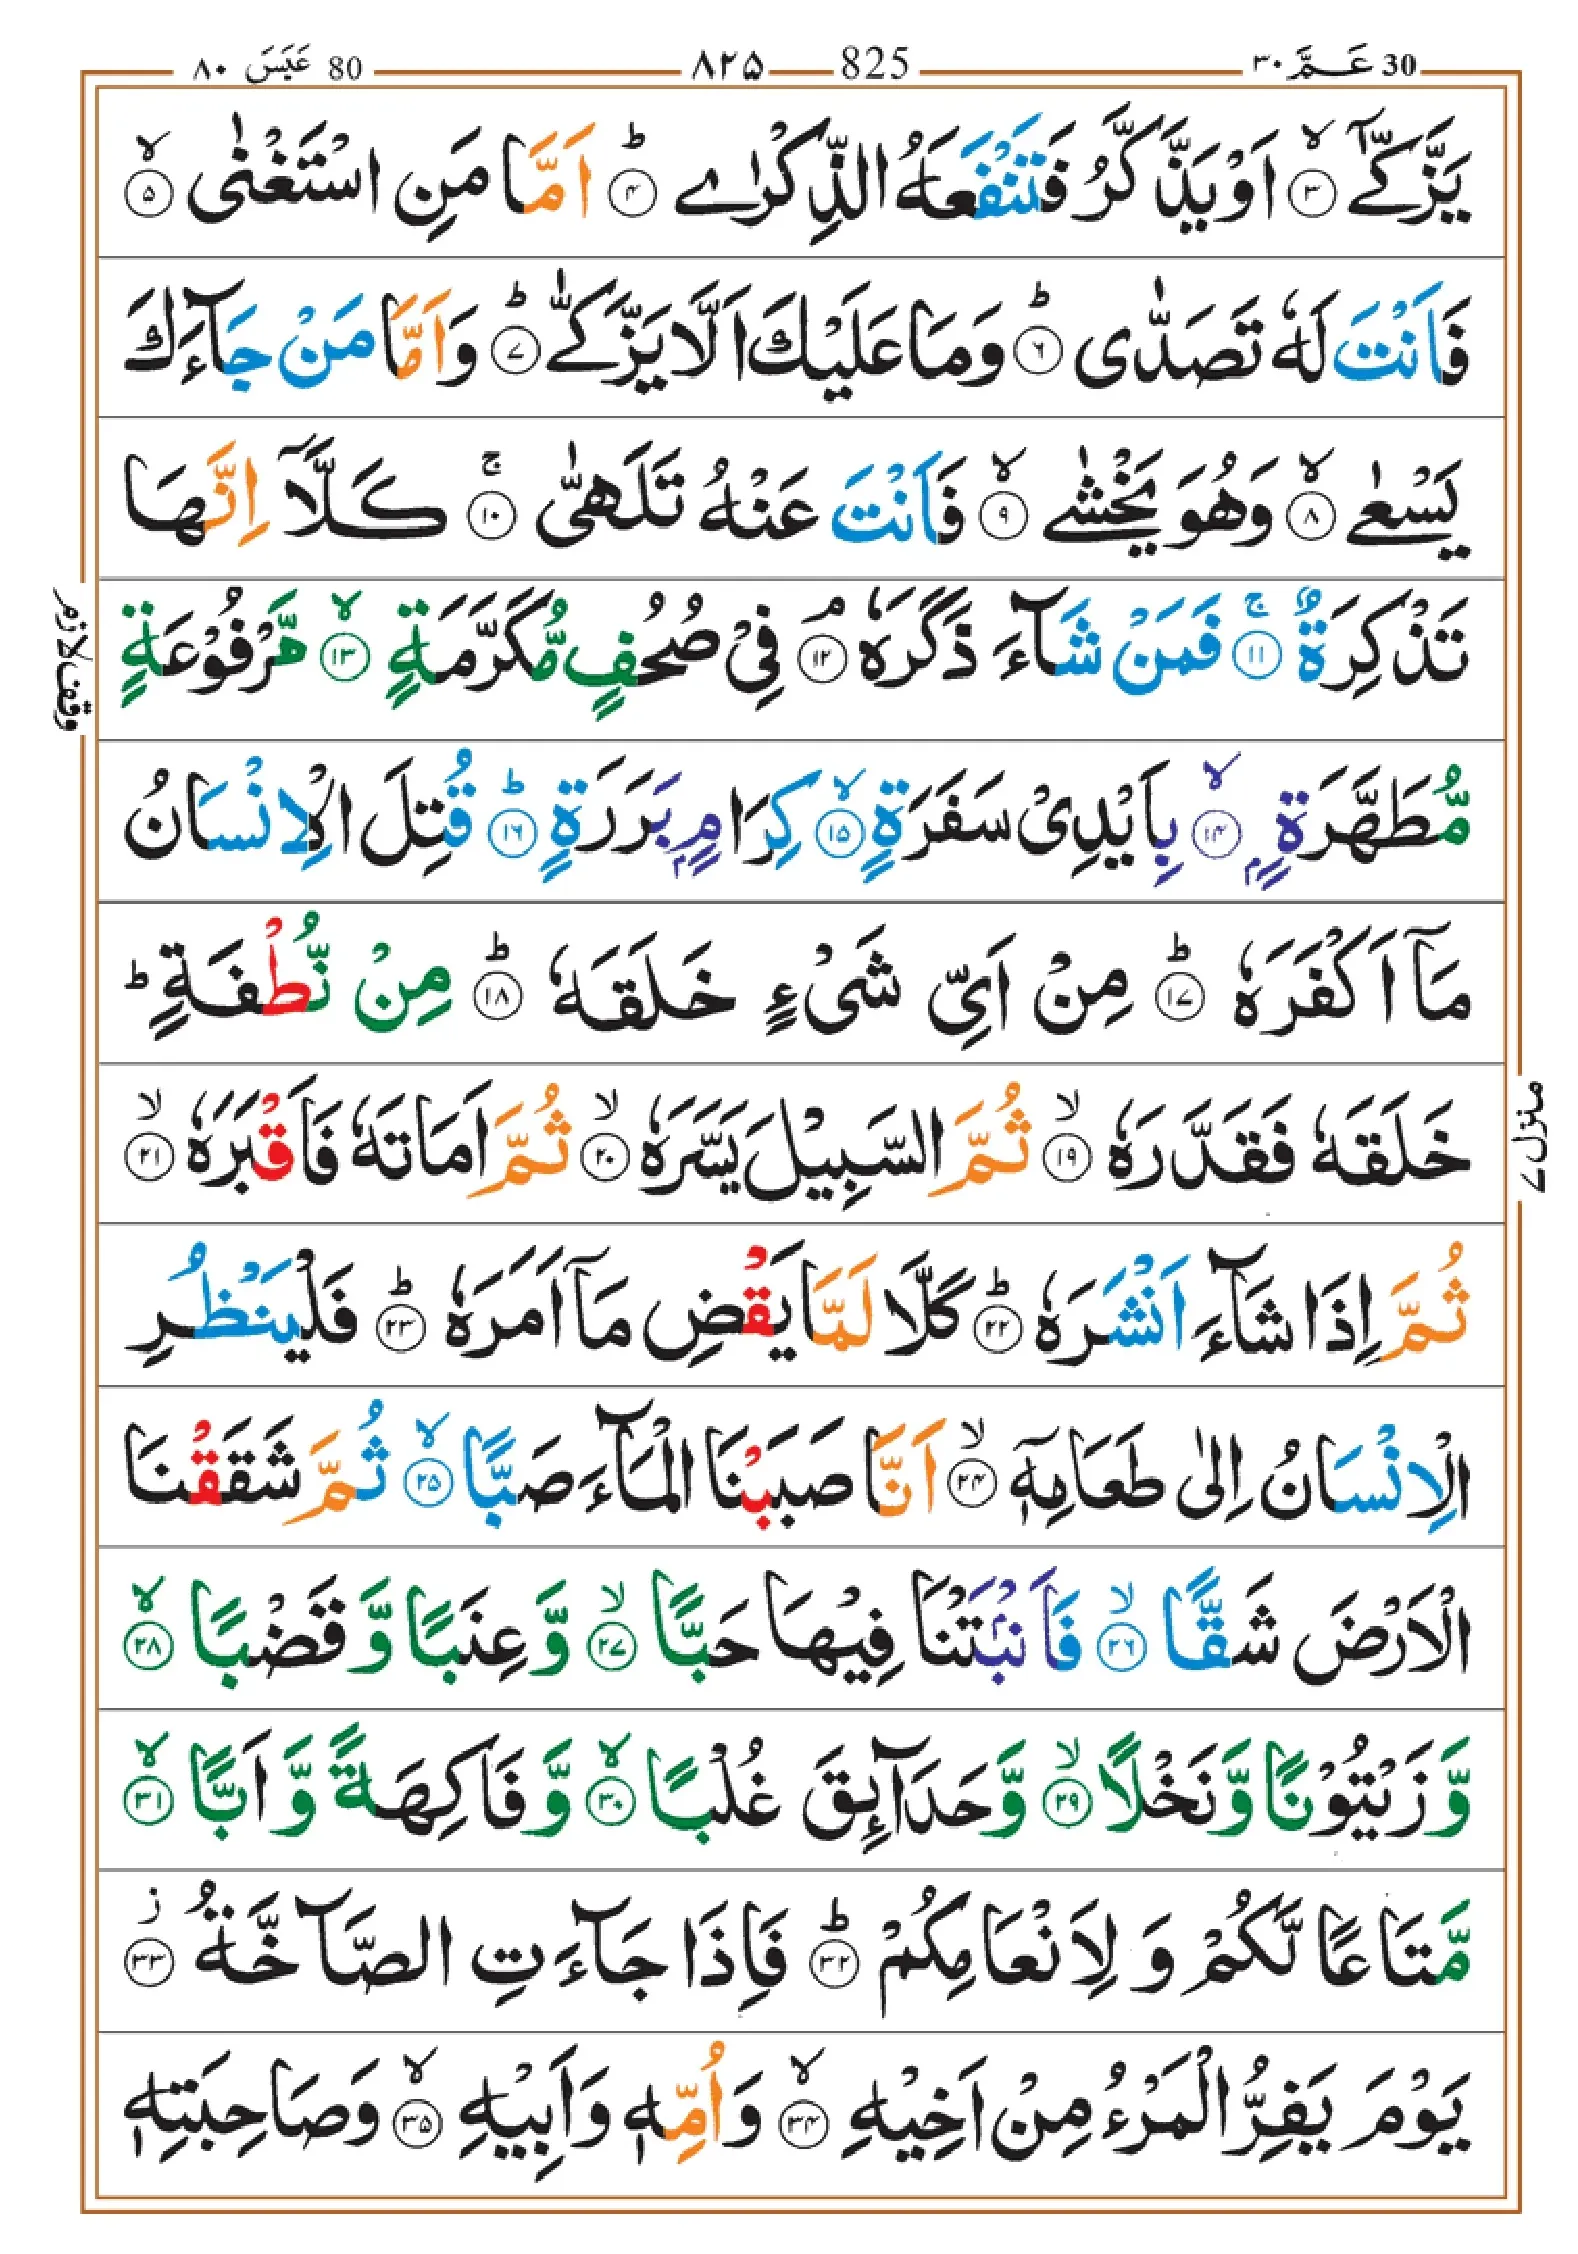 30 عَمَّ ۳۰
825 ۸۲۵
80 عَبَسَ ۸۰
يَزَّكّٰٓى ۙ﴿۳﴾ اَوْ يَذَّكَّرُ فَتَنْفَعَهُ الذِّكْرٰى ؕ﴿۴﴾ اَمَّا مَنِ اسْتَغْنٰى ۙ﴿۵﴾
فَاَنْتَ لَهٗ تَصَدّٰى ؕ﴿۶﴾ وَمَا عَلَيْكَ اَلَّا يَزَّكّٰى ؕ﴿۷﴾ وَاَمَّا مَنْ جَآءَكَ
يَسْعٰى ۙ﴿۸﴾ وَهُوَ يَخْشٰى ۙ﴿۹﴾ فَاَنْتَ عَنْهُ تَلَهّٰى ۚ﴿۱۰﴾ كَلَّاۤ اِنَّهَا
تَذْكِرَةٌ ۚ﴿۱۱﴾ فَمَنْ شَآءَ ذَكَرَهٗ ۘ﴿۱۲﴾ فِىْ صُحُفٍ مُّكَرَّمَةٍ ۙ﴿۱۳﴾ مَّرْفُوْعَةٍ
وقف لازم
مُّطَهَّرَةٍ ۭ ۙ﴿۱۴﴾ بِاَيْدِىْ سَفَرَةٍ ۙ﴿۱۵﴾ كِرَامٍۭ بَرَرَةٍ ؕ﴿۱۶﴾ قُتِلَ الْاِنْسَانُ
مَاۤ اَكْفَرَهٗ ؕ﴿۱۷﴾ مِنْ اَىِّ شَىْءٍ خَلَقَهٗ ؕ﴿۱۸﴾ مِنْ نُّطْفَةٍ ؕ
خَلَقَهٗ فَقَدَّرَهٗ ۙ﴿۱۹﴾ ثُمَّ السَّبِيْلَ يَسَّرَهٗ ۙ﴿۲۰﴾ ثُمَّ اَمَاتَهٗ فَاَقْبَرَهٗ ۙ﴿۲۱﴾
منزل ۷
ثُمَّ اِذَا شَآءَ اَنْشَرَهٗ ؕ﴿۲۲﴾ كَلَّا لَمَّا يَقْضِ مَاۤ اَمَرَهٗ ؕ﴿۲۳﴾ فَلْيَنْظُرِ
الْاِنْسَانُ اِلٰى طَعَامِهٖۤ ۙ﴿۲۴﴾ اَنَّا صَبَبْنَا الْمَآءَ صَبًّا ۙ﴿۲۵﴾ ثُمَّ شَقَقْنَا
الْاَرْضَ شَقًّا ۙ﴿۲۶﴾ فَاَنْۢبَتْنَا فِيْهَا حَبًّا ۙ﴿۲۷﴾ وَّعِنَبًا وَّقَضْبًا ۙ﴿۲۸﴾
وَّزَيْتُوْنًا وَّنَخْلًا ۙ﴿۲۹﴾ وَّحَدَآئِقَ غُلْبًا ۙ﴿۳۰﴾ وَّفَاكِهَةً وَّاَبًّا ۙ﴿۳۱﴾
مَّتَاعًا لَّكُمْ وَ لِاَنْعَامِكُمْ ؕ﴿۳۲﴾ فَاِذَا جَآءَتِ الصَّآخَّةُ ۫﴿۳۳﴾
يَوْمَ يَفِرُّ الْمَرْءُ مِنْ اَخِيْهِ ۙ﴿۳۴﴾ وَاُمِّهٖ وَاَبِيْهِ ۙ﴿۳۵﴾ وَصَاحِبَتِهٖ